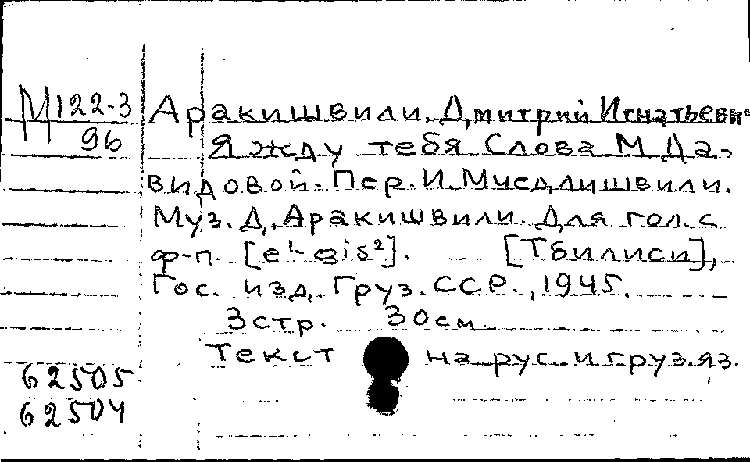 М122-3 Аракишвили, Дмитрий Игнатьевич
96 Я жду тебя Слова М. Да-
видовой. Пер. И. Муседлишвили.
Муз. Д. Аракишвили. Для гол. с
ф-п [e¹-gis²]. [Тбилиси],
Гос. изд. Груз. ССР, 1945.
3 стр. 30 см
Текст на рус. и груз. яз.
62505
62504